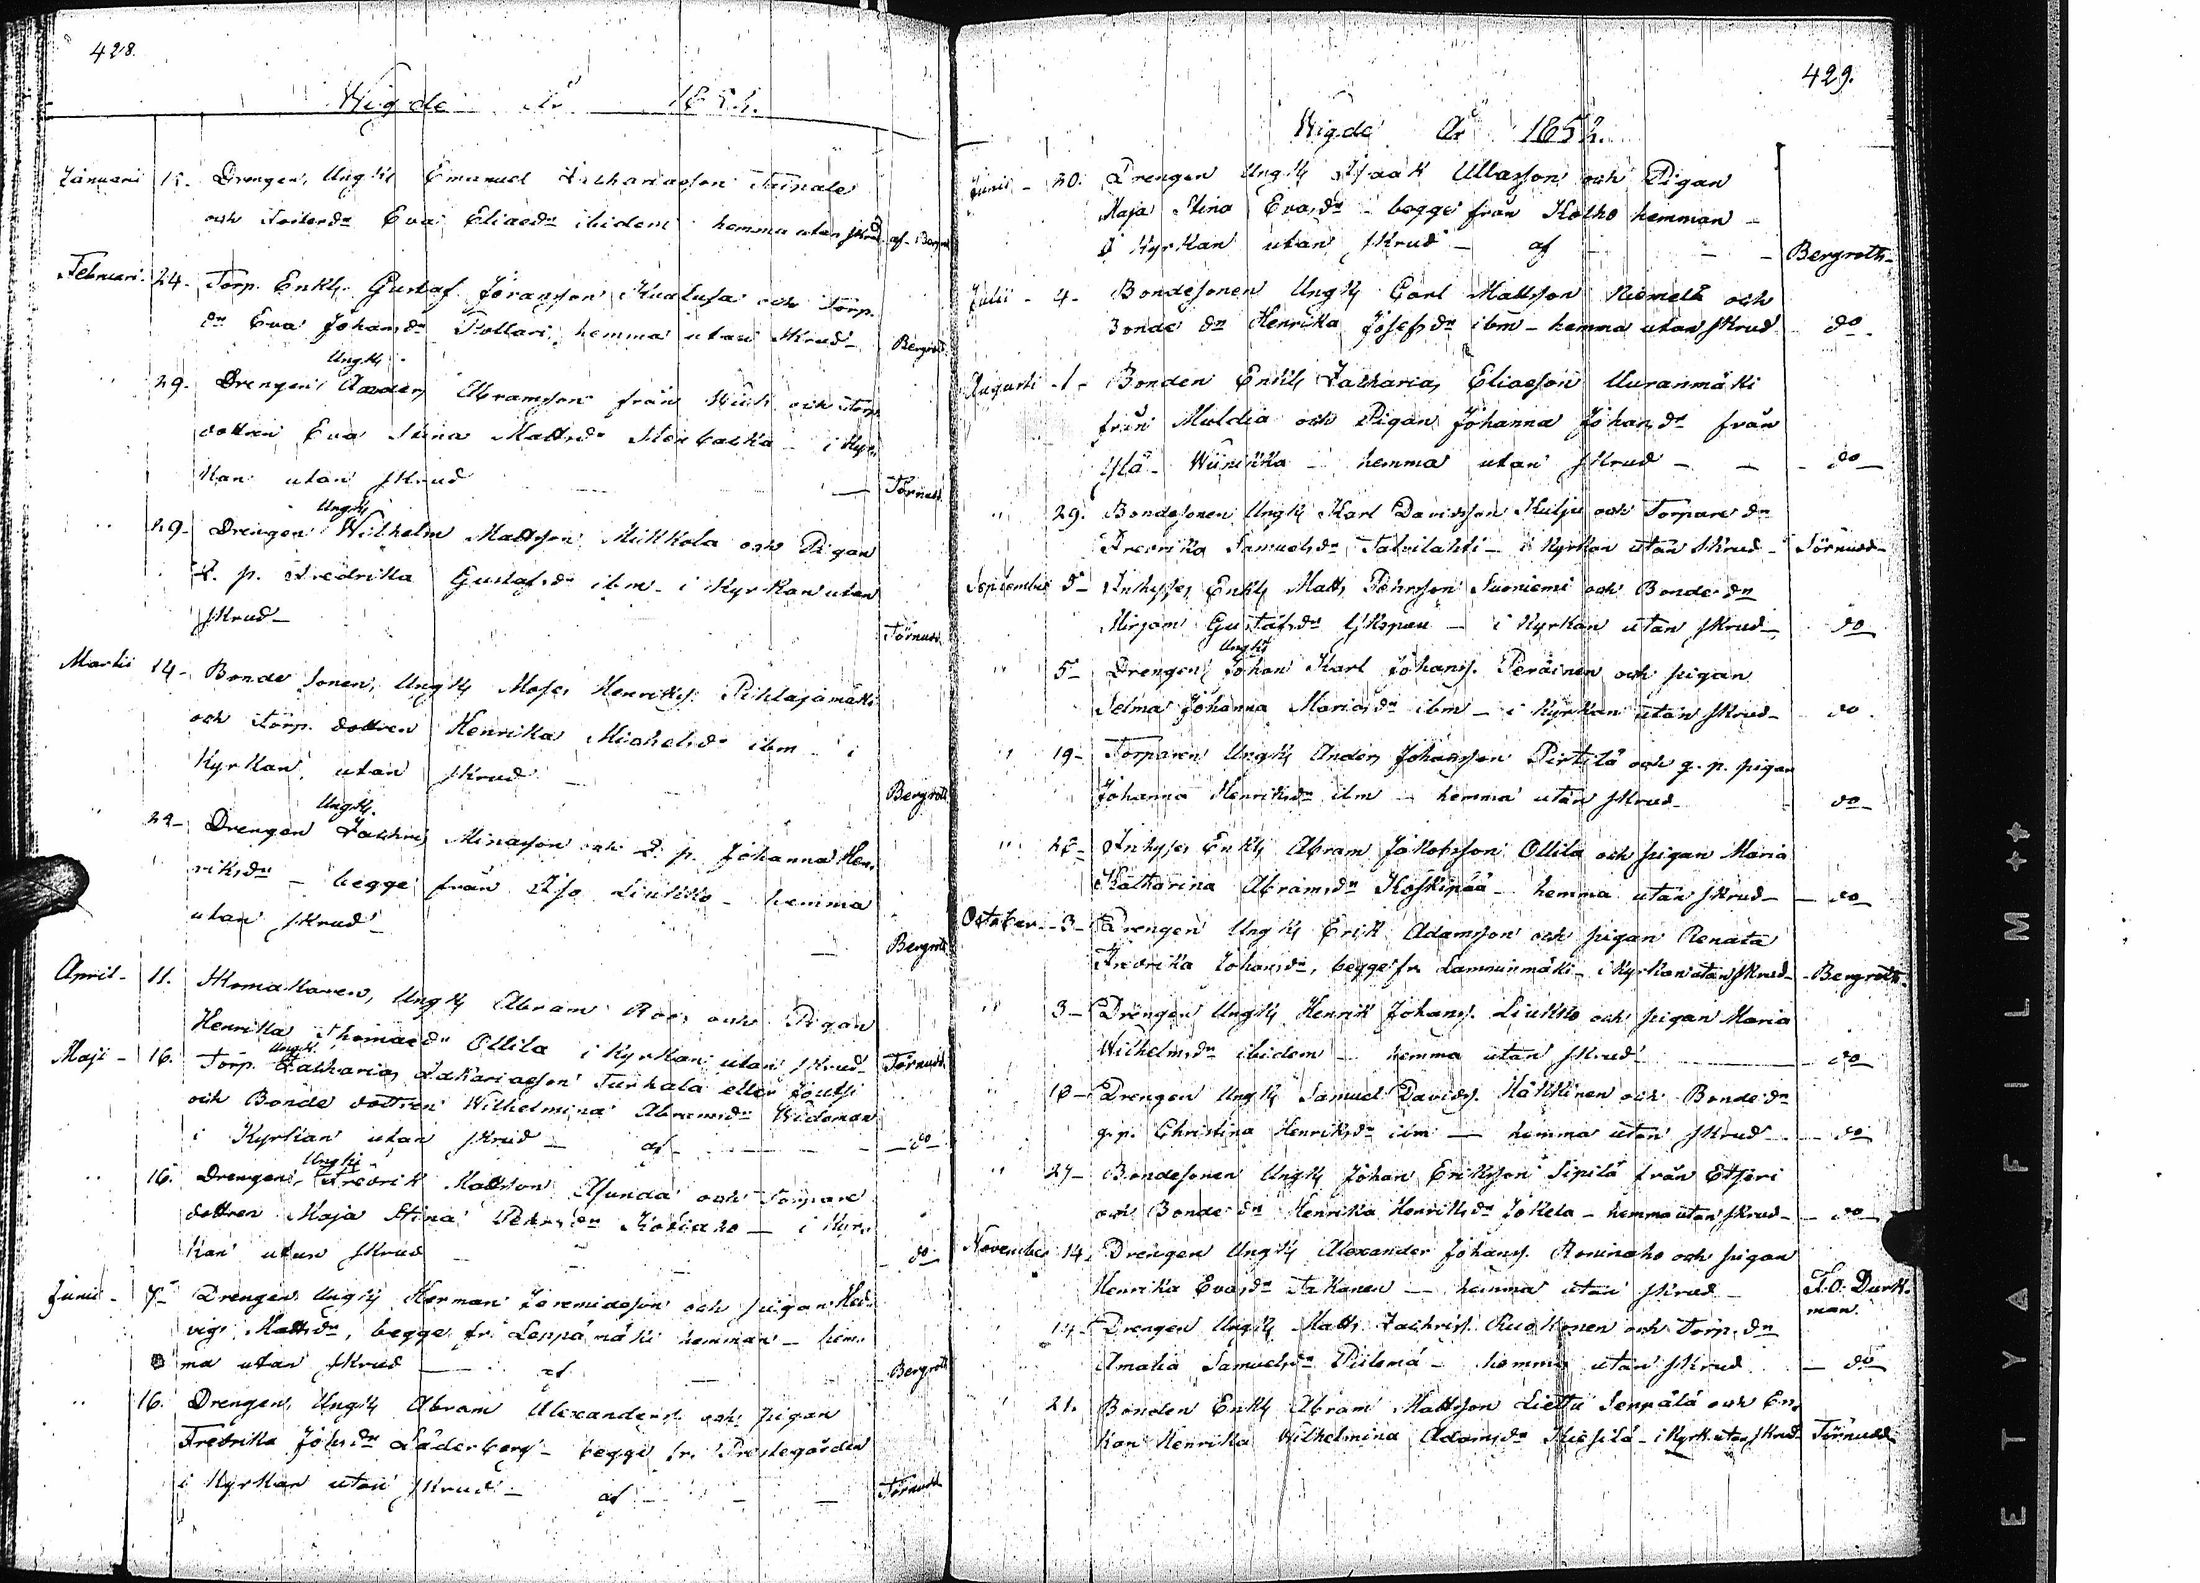 428.
Wigde År 1852.
Januari 1 . Drengen, Ungk Emanuel Zachariasson Tainale
och Eva Eliaedr ibidem hemma utan skrud af Bergroth
Februari 24. Torp. Enkl. Gustaf Göransson och Torp.
dr Eva Johansdr hemma utan skrud Bergroth
Ungk
" 29. Drengen Anders Abramsson från och Torp.
dottren Eva Stina Mattsdr Storbacka i Kyr-
kan utan skrud — Törnudd
Ungk
" 29. Drengen Wilhelm Mattsson Mikkola och Pigan
q. p. Fredrika Gustafsdr ibm. i Kyrkan utan
skrud Törnudd
Martii 14. Bonde sonen, Ungk Moses Henrikss. Pihlajamäki
och Torp. dottren Henrika Michelsdr ibm i
Kyrkan utan skrud Bergroth
Ungk.
" 22. Drengen Zachris Minasson och q. p. Johanna Hen-
riksdr — begge från Iso Liukko — hemma
utan skrud — Bergroth
April 11. Skomakaren, Ungk Abram Roos och Pigan
Henrika Thomaedr Ollila i Kyrkan utan skrud Törnudd
Ungk.
Maji 16. Torp. Zacharias Zakariasson Turhala eller Joutsi
och Bonde dottren Wilhelmina Abramsdr Wideman
i Kyrkan utan skrud — af — do
Ungk
" 16. Drengen, Fredrik Mattsson Asunda och Torpare
dottren Maja Stina Pehrsdr Kotiaho — i Kyr-
kan utan skrud — do
Junii 7 Drengen Ungk Herman Jeremiasson och pigan Hed-
vig Mattsdr, begge fr. Leppämäki hemman — hem-
ma utan skrud — af — Bergroth
" 16. Drengen, Ungk Abram Alexanders och pigan
Fredrika Johsdr Läderberg — begge fr. Prestegården
i Kyrkan utan skrud — af — Törnudd
429.
Wigde År 1852.
Junii 20. Drengen Ungk Isaak Ullasson och Pigan
Maja Stina Evasdr — begge från Kolho hemman —
i Kyrkan utan skrud — af — Bergroth
Julii 4. Bondesonen Ungk Carl Mattsson Niemelä och
Bonde dr Henrika Josefsdr ibm — hemma utan skrud do
Augusti 1. Bonden Enkl Zacharias Eliasson Uuranmäki
från Muldia och Pigan Johanna Johansdr från
Ylä — hemma utan skrud — do
" 29. Bondesonen Ungk Karl Davidsson Kulju och Torpare dr
Fredrika Samuelsdr Talvilahti — i Kyrkan utan skrud — Törnudd
September 5 — Inhyses Enkl Matts Pehrsson Suoniemi och Bonde dr
Mirjam Gustafsdr — i Kyrkan utan skrud — do
Ungk
" 5 Drengen Johan Karl Johans. Peräinen och pigan
Selma Johanna Mariasdr ibm — i Kyrkan utan skrud — do
" 19 — Torparen Ungk Anders Johansson Pirtilä och q. p. pigan
Johanna Henriksdr ibm — hemma utan skrud — do
" 26 — Inhyses Enkl Abram Jakobsson Ollila och pigan Maria
Katharina Abramsdr Koskipää — hemma utan skrud — do
October 3 — Drengen Ungk Erik Adamsson och pigan Renata
Fredrika Johansdr, begge fr. Lamminmäki — i Kyrkan utan skrud — Bergroth
" 3 — Drengen Ungk Henrik Johans. Liukko och pigan Maria
Wilhelmsdr ibidem — hemma utan skrud — do
" 10 — Drengen Ungk Samuel Davids. Häkkinen och Bonde dr
q. p. Christina Henriksdr ibm — hemma utan skrud — do
" 27 — Bondesonen Ungk Johan Eriksson Sipilä från Etseri
och Bonde dr Henrika Henriksdr Jokela — hemma utan skrud — do
November 14. Drengen Ungk Alexander Johans. Roninaho och pigan
Henrika Evasdr Takanen — hemma utan skrud — F. O. Durk-
man
" 14. Drengen Ungk Matts Zachriss. Ruokonen och Torp. dr
Amalia Samuelsdr — hemma utan skrud — do
" 21. Bonden Enkl Abram Mattsson Liettu Seppälä och En-
kan Henrika Wilhelmina Adamsdr — i Kyrk. utan skrud — Törnudd
ETYAFILM